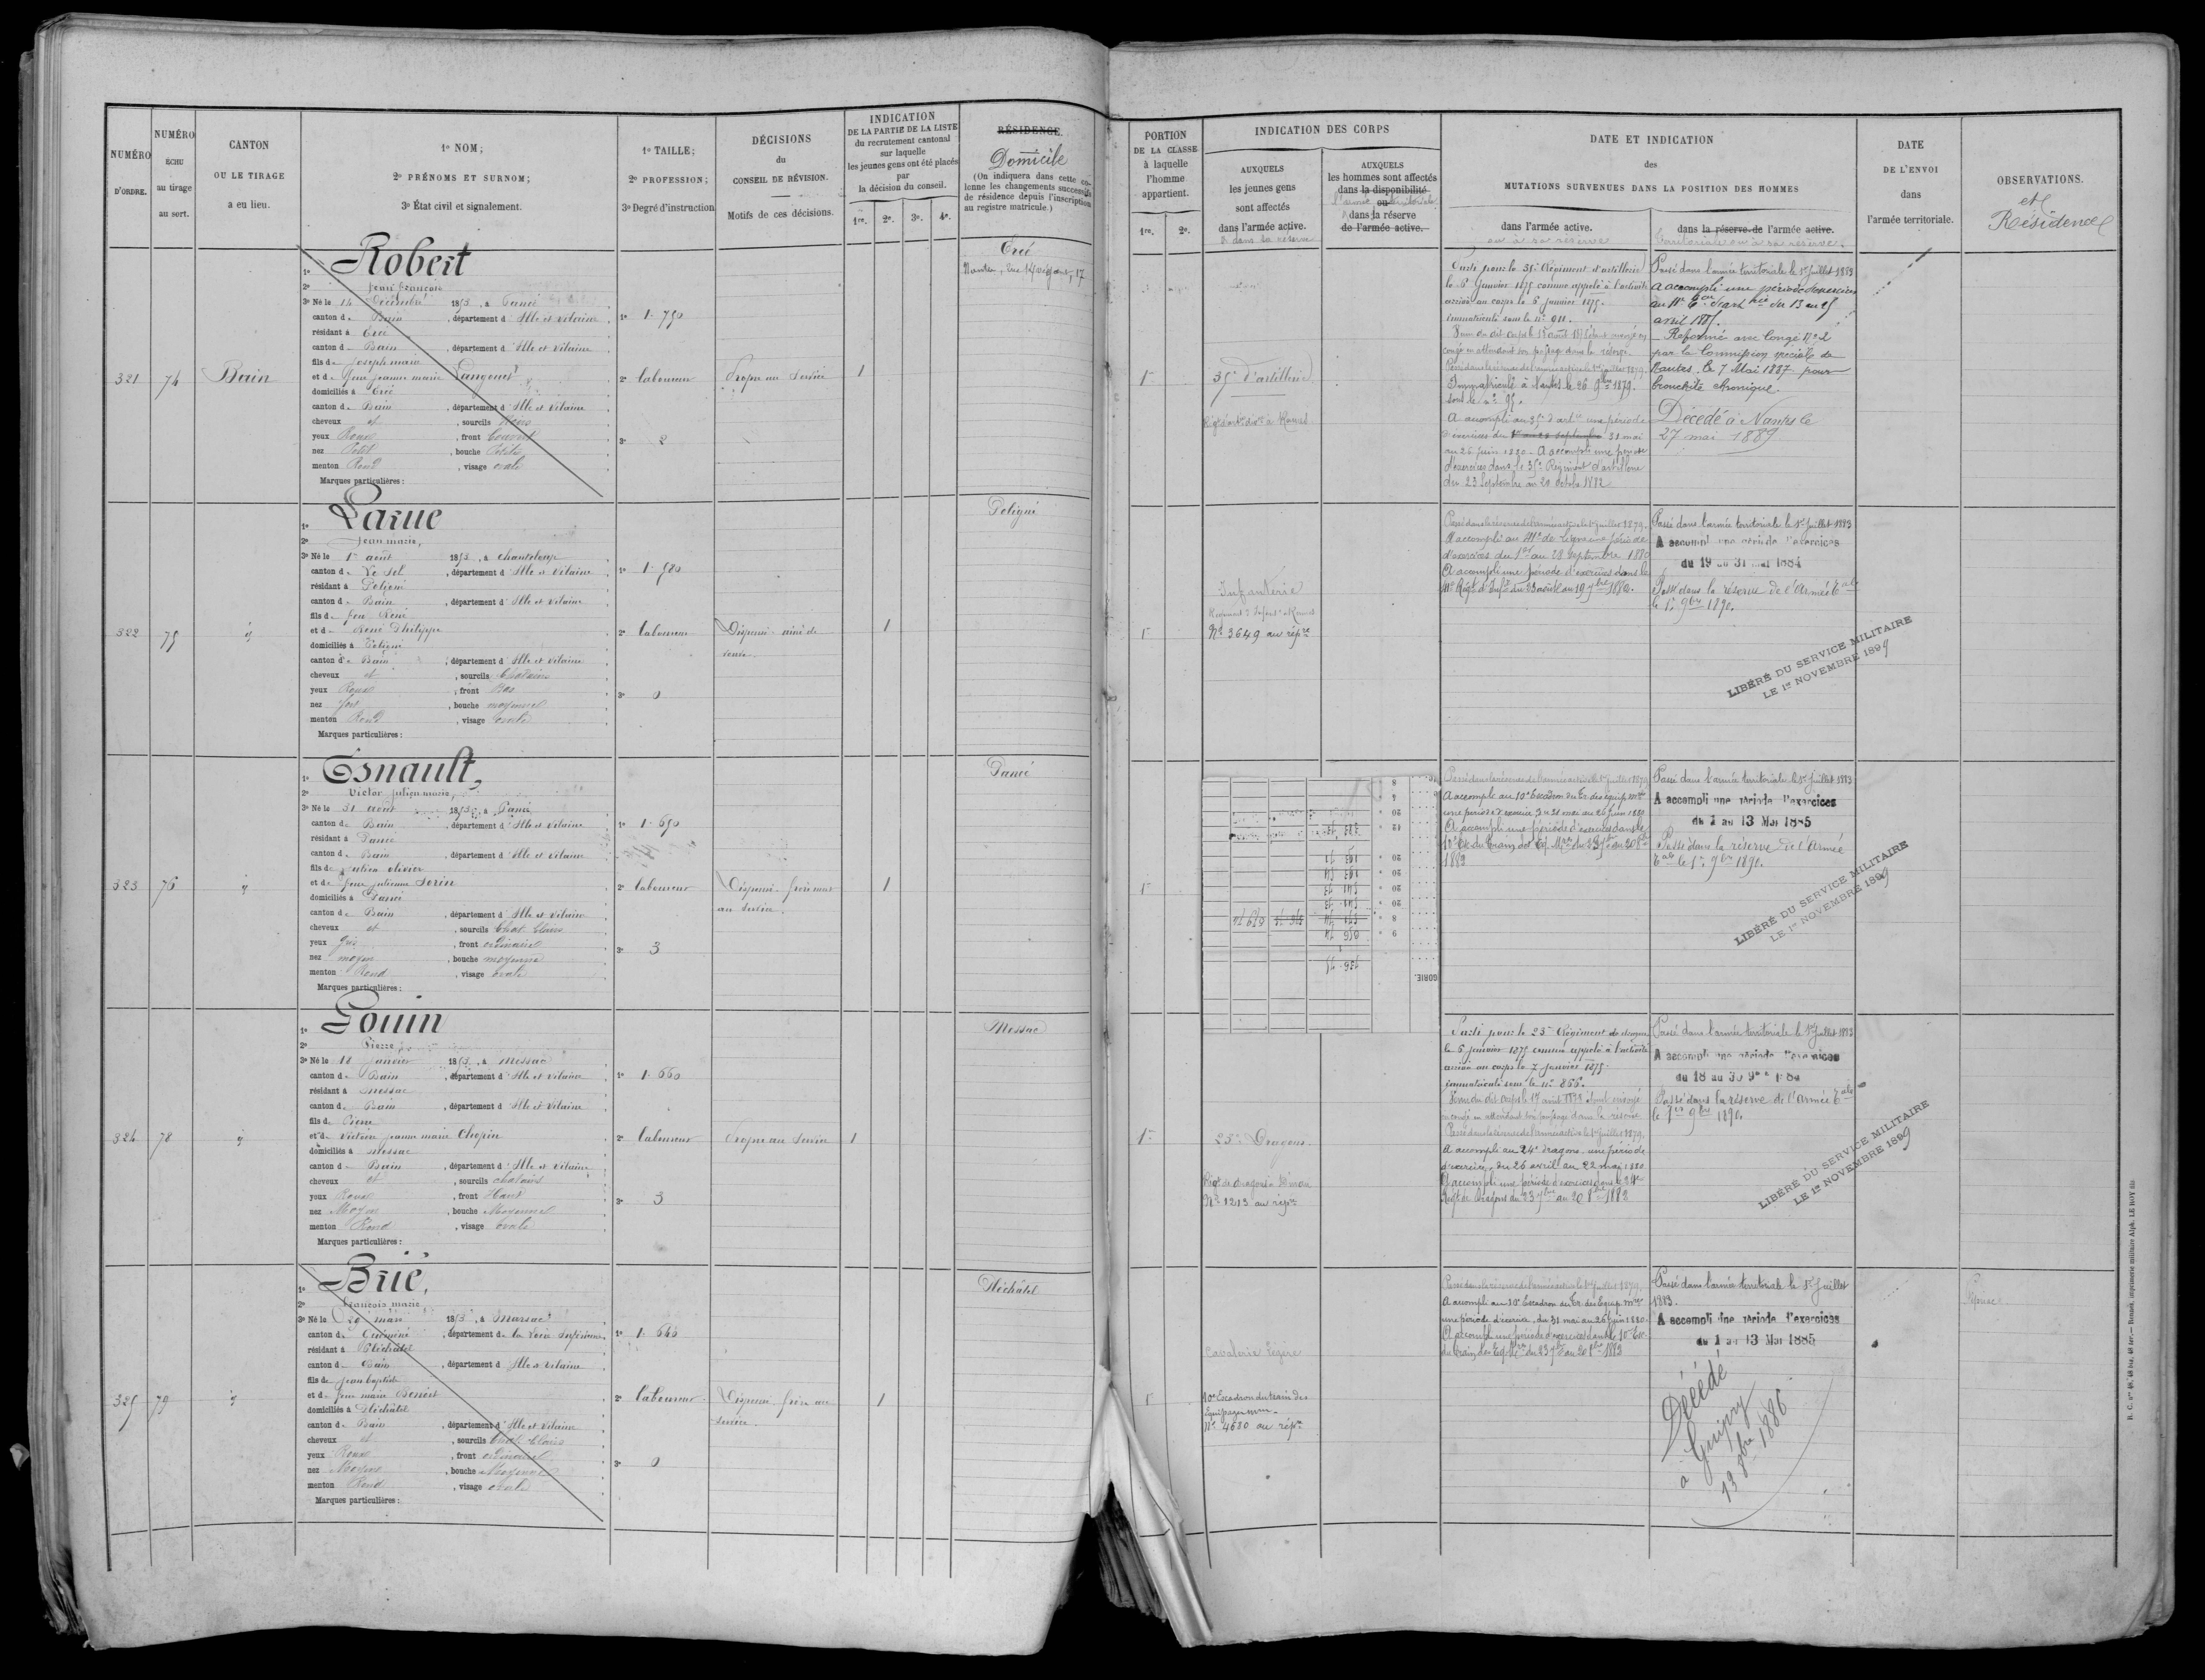 NUMÉRO
D'ORDRE.
NUMÉRO
ÉCHU
au tirage
au sort.
CANTON
OU LE TIRAGE
a eu lieu.
1º NOM;
2º PRÉNOMS ET SURNOM;
3º État civil et signalement.
1º TAILLE;
2º PROFESSION;
3º Degré d'instruction
DÉCISIONS
du
CONSEIL DE RÉVISION.
Motifs de ces décisions.
INDICATION
DE LA PARTIE DE LA LISTE
du recrutement cantonal
sur laquelle
les jeunes gens ont été placés
par
la décision du conseil.
1re. 2e. 3e. 4e.
RÉSIDENCE.
Domicile
(On indiquera dans cette co-
lonne les changements successifs
de résidence depuis l'inscription
au registre matricule.)
321
74
Bain
1º Robert
2º
3º Né le 14 Décembre 1853, à Pancé
canton de Bain, département d'Ille et Vilaine
résidant à Ercé
canton de Bain, département d'Ille et Vilaine
fils de Joseph marie
et de feue jeanne marie Langouet
domiciliés à Ercé
canton de Bain, département d'Ille et Vilaine
cheveux et, sourcils Noirs
yeux Roux, front Couvert
nez Petit, bouche Petite
menton Rond, visage ovale
Marques particulières :
1º 1. 750
2º laboureur
3º 2
Propre au Service
1
Ercé
322
75
id
1º Larue
2º Jean marie,
3º Né le 1er août 1853, à Chanteloup
canton de Le Sel, département d'Ille et Vilaine
résidant à Poligné
canton de Bain, département d'Ille et Vilaine
fils de feu René
et de René Philippe
domiciliés à Poligné
canton de Bain, département d'Ille et Vilaine
cheveux et, sourcils Chatains
yeux Roux, front Bas
nez fort, bouche moyenne
menton Rond, visage ovale
Marques particulières :
1º 1. 580
2º laboureur
3º 0
Dispensé - ainé de
veuve.
1
Poligné
323
76
id
1º Esnault,
2º Victor julien marie,
3º Né le 31 août 1853, à Pancé
canton de Bain, département d'Ille et Vilaine
résidant à Pancé
canton de Bain, département d'Ille et Vilaine
fils de julien olivier
et de feue julienne Sorin
domiciliés à Pancé
canton de Bain, département d'Ille et Vilaine
cheveux et, sourcils Chat. Clairs
yeux Gris, front ordinaire
nez moyen, bouche moyenne
menton Rond, visage ovale
Marques particulières :
1º 1. 690
2º laboureur
3º 3
Dispensé - frère mort
au service.
1
Pancé
324
78
id
1º Gouin
2º Pierre,
3º Né le 18 janvier 1853, à Messac
canton de Bain, département d'Ille et Vilaine
résidant à Messac
canton de Bain, département d'Ille et Vilaine
fils de Pierre
et de Victoire jeanne marie Chopin
domiciliés à Messac
canton de Bain, département d'Ille et Vilaine
cheveux et, sourcils chatains
yeux Roux, front Haut
nez Moyen, bouche Moyenne
menton Rond, visage ovale
Marques particulières :
1º 1. 660
2º laboureur
3º 3
Propre au Service
1
Messac
325
79
id
1º Brié,
2º François marie
3º Né le 29 mars 1853, à Marsac
canton de Guémené, département de la Loire Inférieure
résidant à Pléchatel
canton de Bain, département d'Ille et Vilaine
fils de jean baptiste
et de feue marie Benoist
domiciliés à Pléchâtel
canton de Bain, département d'Ille et Vilaine
cheveux et, sourcils Chat. Clairs
yeux Roux, front ordinaire
nez Moyen, bouche Moyenne
menton Rond, visage ovale
Marques particulières :
1º 1. 646
2º laboureur
3º 0
Dispensé. frère au
service.
1
Pléchâtel
PORTION
DE LA CLASSE
à laquelle
l'homme
appartient.
1re. 2e.
INDICATION DES CORPS
AUXQUELS
les jeunes gens
sont affectés
dans l'armée active.
& dans sa réserve
AUXQUELS
les hommes sont affectés
dans la disponibilité
l'armée territoriale
ou
dans la réserve
de l'armée active.
DATE ET INDICATION
des
MUTATIONS SURVENUES DANS LA POSITION DES HOMMES
dans l'armée active.
ou à sa réserve
dans la réserve de l'armée active.
territoriale ou à sa réserve.
DATE
DE L'ENVOI
dans
l'armée territoriale.
OBSERVATIONS.
et
Résidence
1re
35e d'artillerie
Parti pour le 35e Régiment d'artillerie
le 5 Janvier 1875 comme appelé à l'activité
arrivé au corps le 6 janvier 1875.
immatriculé sous le nº 911.
congé en attendant son passage dans la réserve.
Passé dans la réserve de l'armée active le 1er juillet 1879.
Immatriculé à Nantes le 26 9bre 1879.
sous le nº 95.
A accompli au 35e d'artie une période
d'exercices du 1er au 28 septembre 31 mai
au 26 juin 1880 - A accompli une période
d'exercices dans le 35e Régiment d'artillerie
du 23 Septembre au 20 octobre 1882
Passé dans l'armée territoriale le 1er Juillet 1883
A accompli une période d'exercices
avril 1885.
- Réformé avec Congé Nº 2
par la Commission spéciale de
Nantes, le 7 Mai 1887 pour
bronchite chronique.
Décédé à Nantes le
27 mai 1889
1re
Infanterie
Nº 3649 au répre
Passé dans la réserve de l'armée active le 1er juillet 1879.
A accompli au 41e de ligne une période
d'exercices du 1er au 28 septembre 1880
A accompli une période d'exercices dans le
41e Régt d'Infie du 23 août au 19 7bre 1882.
Passé dans l'armée territoriale le 1er Juillet 1883
A accompli une période d'exercices
du 19 au 31 mai 1884
Passé dans la réserve de l'Armée Tale
le 1er 9bre 1890.
LIBÉRÉ DU SERVICE MILITAIRE
LE 1er NOVEMBRE 1899
1re
Passé dans la réserve de l'armée active le 1er juillet 1879
A accompli au 10e Escadron du Tr. des équip. mres
une période d'exercices du 31 mai au 26 juin 1880
A accompli une période d'exercices dans le
10e Esc. du Train des Eq. Mres du 23 7bre au 20 8bre
1882
Passé dans l'armée territoriale le 1er Juillet 1883
A accompli une période d'exercices
du 1 au 13 Mai 1885
Passé dans la réserve de l'Armée
Tale le 1er 9bre 1890.
LIBÉRÉ DU SERVICE MILITAIRE
LE 1er NOVEMBRE 1899
1re
23e Dragons.
Régt de dragons à Dinan
Nº 1213 au répre
Parti pour le 23e Régiment de dragons
le 5 janvier 1875 comme appelé à l'activité
arrivé au corps le 7 janvier 1875.
immatriculé sous le nº 866.
en congé en attendant son passage dans la réserve
Passé dans la réserve de l'armée active le 1er juillet 1879.
A accompli au 24e dragons, une période
d'exercices, du 26 avril au 22 mai 1880
A accompli une période d'exercices dans le 24e
Régt de Dragons du 23 7bre au 20 8bre 1882
Passé dans l'armée territoriale le 1er Juillet 1883
A accompli une période d'exercices
Passé dans la réserve de l'Armée Tale
le 1er 9bre 1890.
LIBÉRÉ DU SERVICE MILITAIRE
LE 1er NOVEMBRE 1899
1re
Cavalerie légère
10e Escadron du train des
équipages mres
Nº 4680 au répre
Passé dans la réserve de l'armée active le 1er juillet 1879.
A accompli au 10e Escadron du Tr. des Equip. mres
une période d'exercices, du 31 mai au 26 juin 1880.
A accompli une période d'exercices dans le 10e Esc.
du Train des Eq. Mres du 23 7bre au 20 8bre 1882
Passé dans l'armée territoriale le 1er Juillet
1883.
A accompli une période d'exercices
du 1 au 13 Mai 1885
Décédé
à Guipry
13 9bre 1886
R. C. nos 48, 48 bis, 48 ter. — Rennes, imprimerie militaire Alph. LE ROY fils